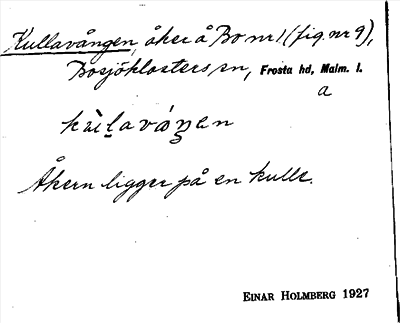 Kullavången, åker å Bo nr 1 (fig. nr 9),
Bosjöklosters sn, Frosta hd, Malm. l.
a
Åkern ligger på en kulle.
EINAR HOLMBERG 1927